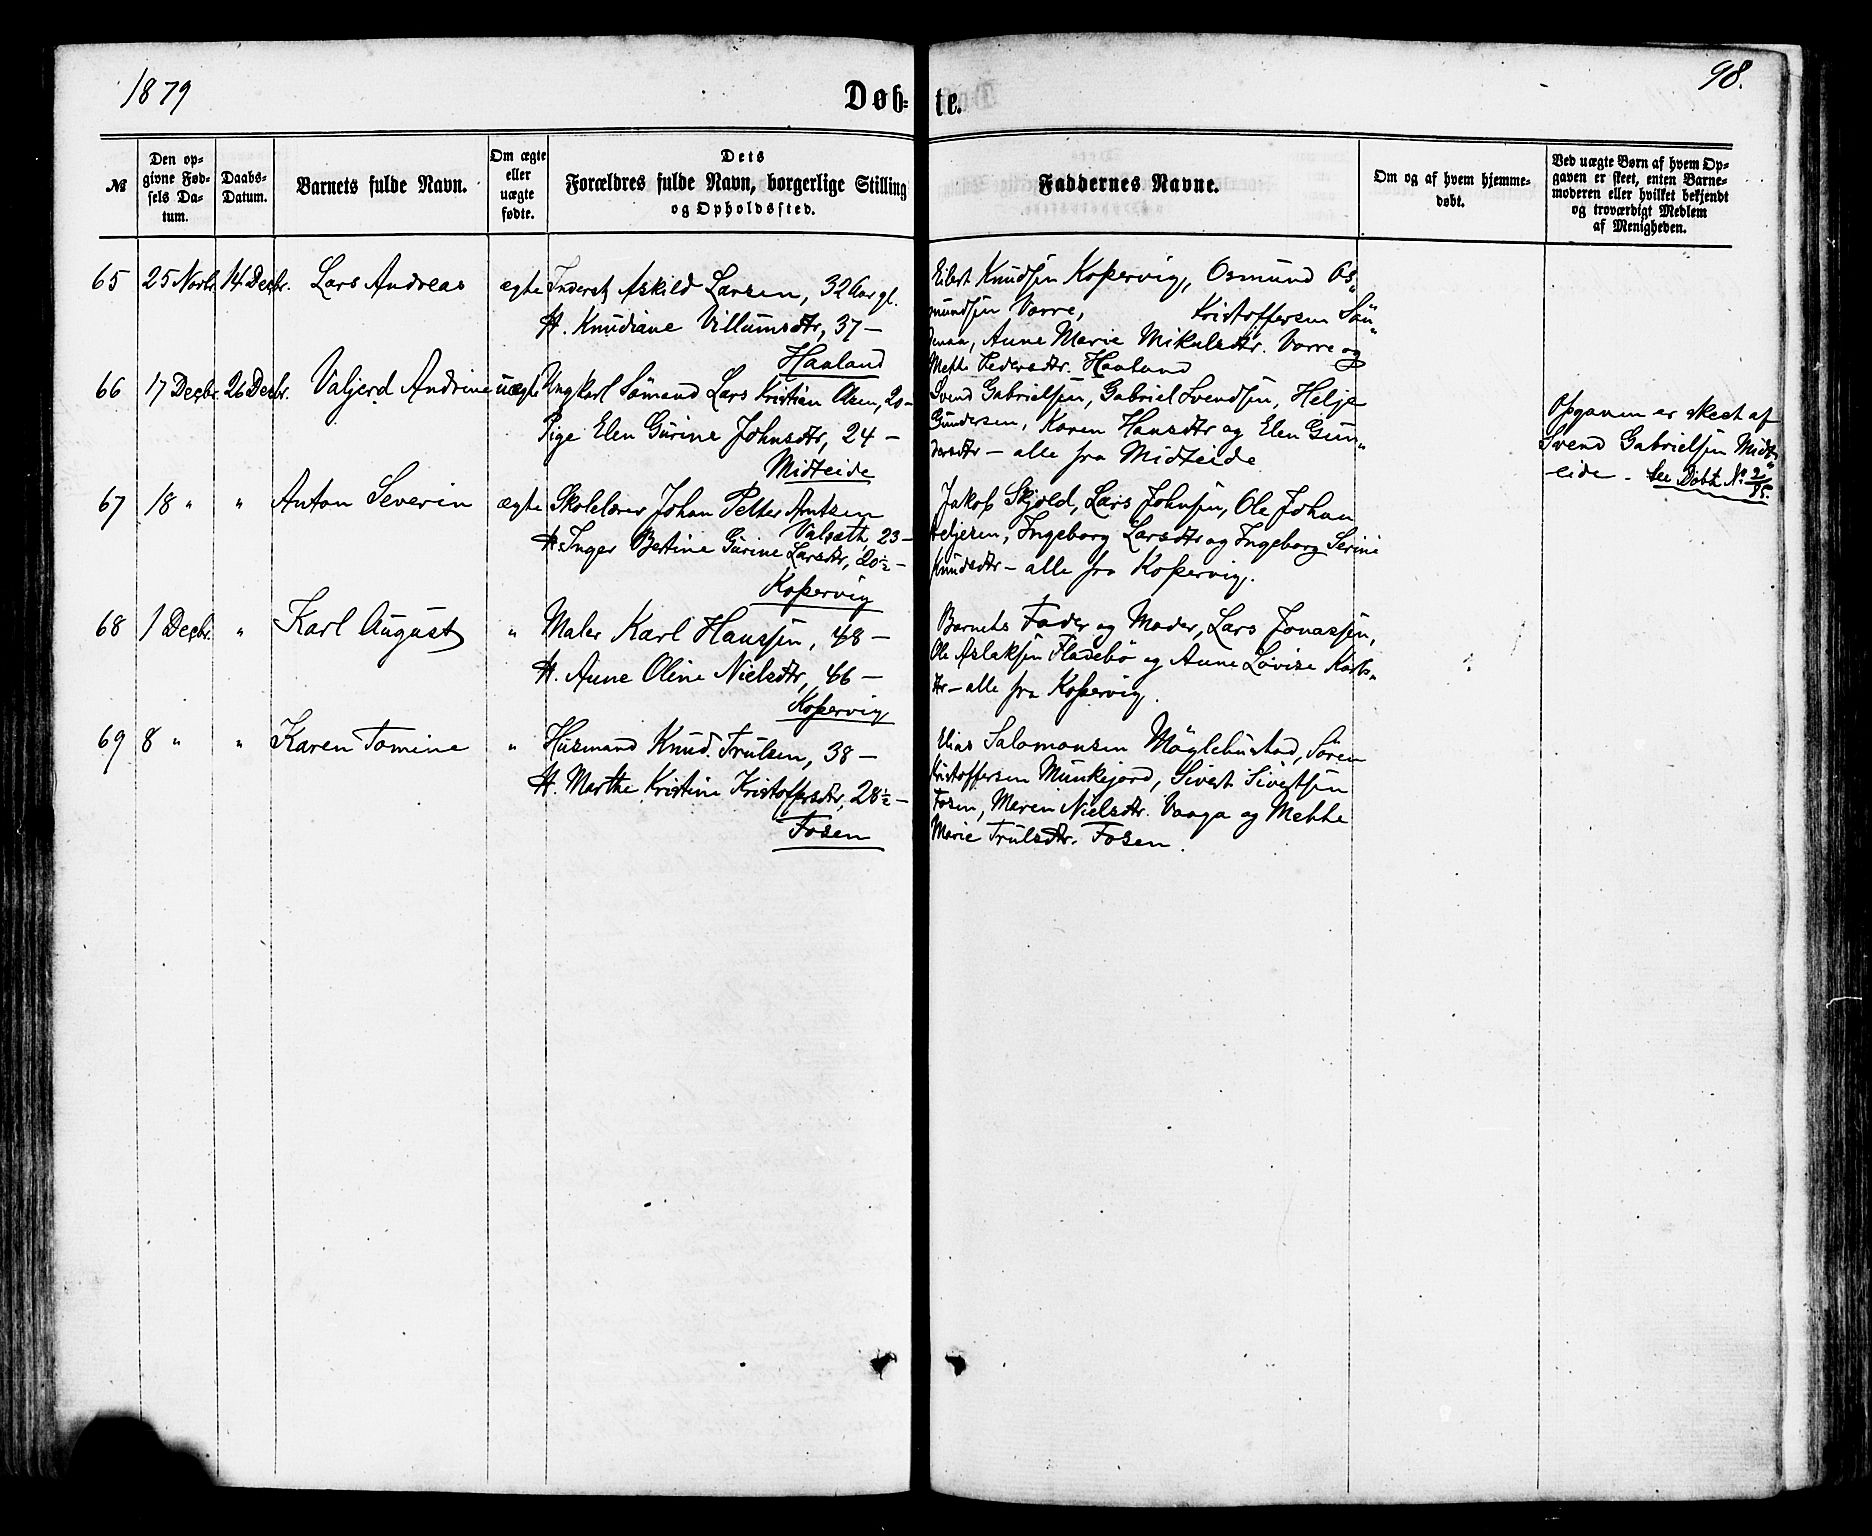 1879
Døb-
te.
98.
№
Den op-
givne Fød-
sels Da-
tum.
Daabs-
Datum.
Barnets fulde Navn.
Om ægte
eller
uægte
fødte.
Dets
Forældres fulde Navn, borgerlige Stilling
og Opholdssted.
Faddernes Navne.
Om og af hvem hjemme-
døbt.
Ved uægte Børn af hvem Op-
gaven er skeet, enten Barne-
moderen eller hvilket bekjendt
og troværdigt Medlem
af Menigheden.
65 25 Novbr. 14 Decbr. Lars Andreas ægte Inderst Askild Larsen, 32 Aar gl.
H. Knudiane Villumsdtr, 37 —
Haaland
Eilert Knudsen Kopervig, Osmund Os„
mundsen Vorre, Kristoffersen Sön„
Anne Marie Mikalsdtr. Vorre og
Mette Pedersdtr. Haaland
66 17 Decbr. 26 Decbr. Valjerd Andrine uægte Ungkarl Sömand Lars Kristian Olsen, 20 —
Pige Elen Gurine Johnsdtr, 24 —
Midteide
Svend Gabrielsen, Gabriel Svendsen, Helje
Gundersen, Karen Hansdtr og Elen Gun„
dersdtr — alle fra Midteide
Opgaven er skeet af
Svend Gabrielsen Midt„
eide. See Döbt. No 2/85.
67 18 " " Anton Severin ægte Skolelærer Johan Petter Arntsen
Valsøth 23 —
H. Inger Bertine Gurine Larsdtr, 20½ —
Kopervig
Jakob Skjold, Lars Johnsen, Ole Johan
Heljesen, Ingeborg Larsdtr og Ingeborg Serine
Knudsdtr — alle fra Kopervig.
68 1 Decbr. " Karl August " Maler Karl Hanssen, 48 —
H. Anne Oline Nielsdtr, 46 —
Kopervig
Barnets Fader og Moder, Lars Jonassen,
Ole Aslaksen Fladebö og Anne Lovise Karls„
dtr — alle fra Kopervig.
69 8 " " Karen Tomine " Husmand Knud Trulsen, 38 —
H. Marthe Kristine Kristoffersdtr, 28½ —
Fosen
Elias Salomonsen Möglebustad, Sören
Kristoffersen Munkejord, Sivert Sivertsen
Fosen, Maren Nielsdtr. Vaaga og Mette
Marie Trulsdtr. Fosen.